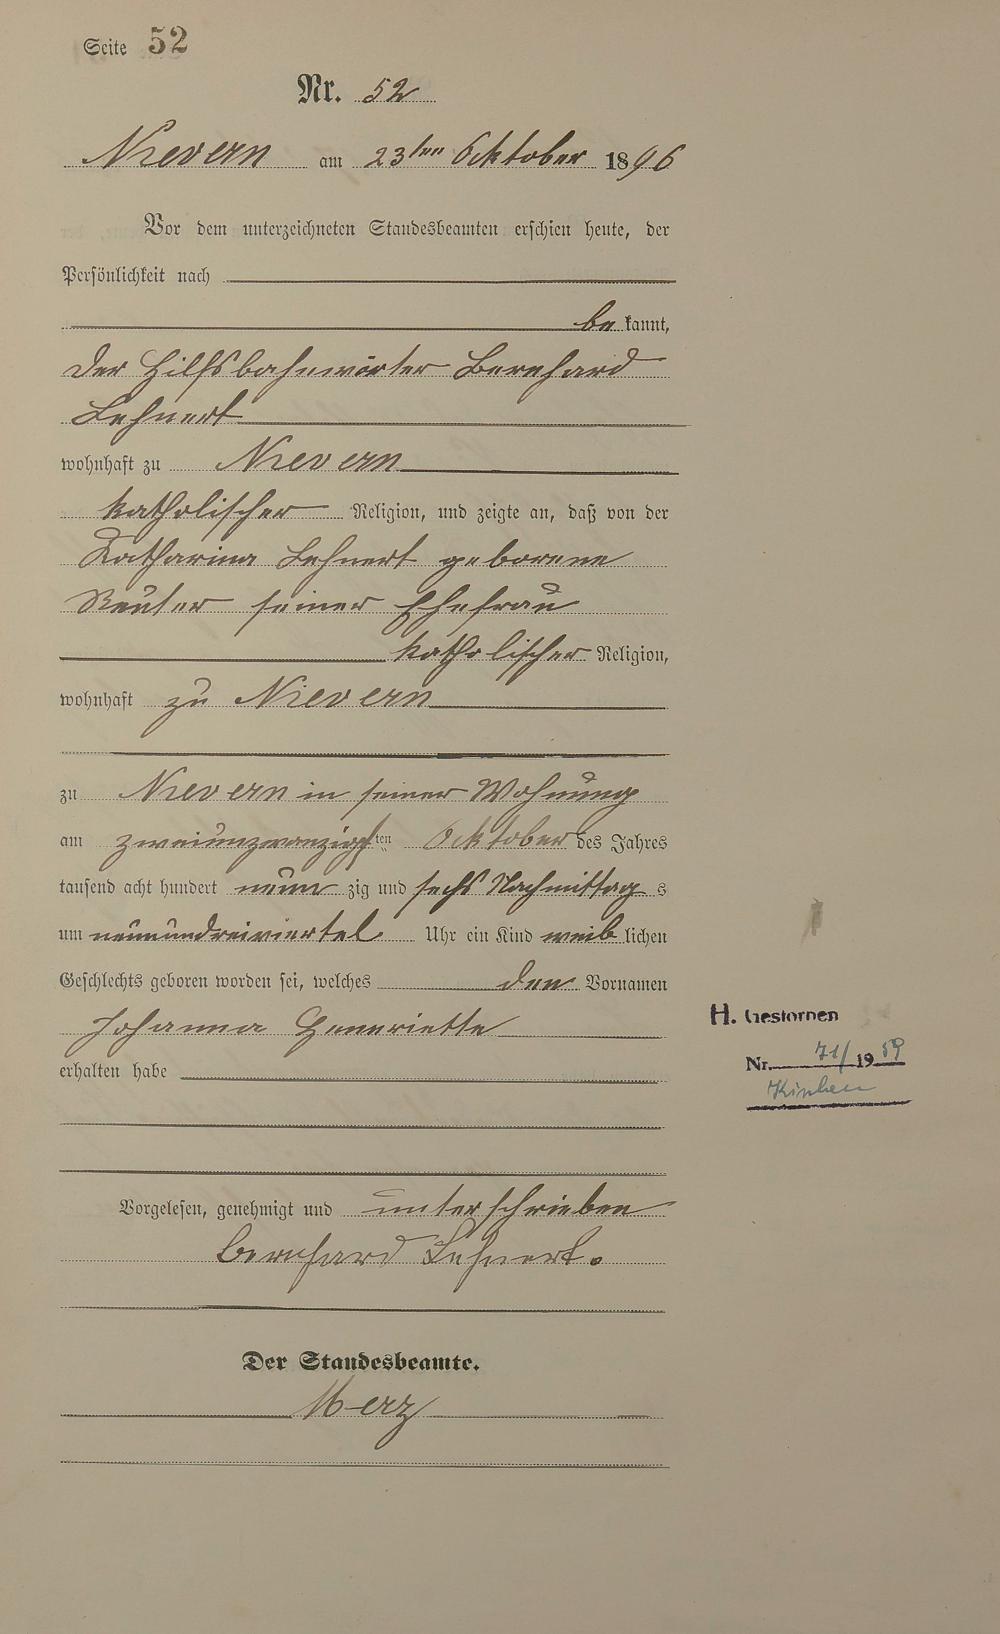 Seite 52
Nr. 52
Nievern am 23ten Oktober 1896
Vor dem unterzeichneten Standesbeamten erschien heute, der
Persönlichkeit nach
be kannt,
der Hilfsbahnwärter Bernhard
Lehnert
wohnhaft zu Nievern
katholischer Religion, und zeigte an, daß von der
Katharina Lehnert geborene
Reuser seiner Ehefrau
katholischer Religion,
wohnhaft zu Nievern
zu Nievern in seiner Wohnung
am zweiunzwanzigsten Oktober des Jahres
tausend acht hundert neun zig und sechs Nachmittag s
um neununddreiviertel Uhr ein Kind weib lichen
Geschlechts geboren worden sei, welches den Vornamen
Johanna Henriette
erhalten habe
H. Gestorben
Nr. 71/1959
Vorgelesen, genehmigt und unterschrieben
Bernhard Lehnert.
Der Standesbeamte.
Merz